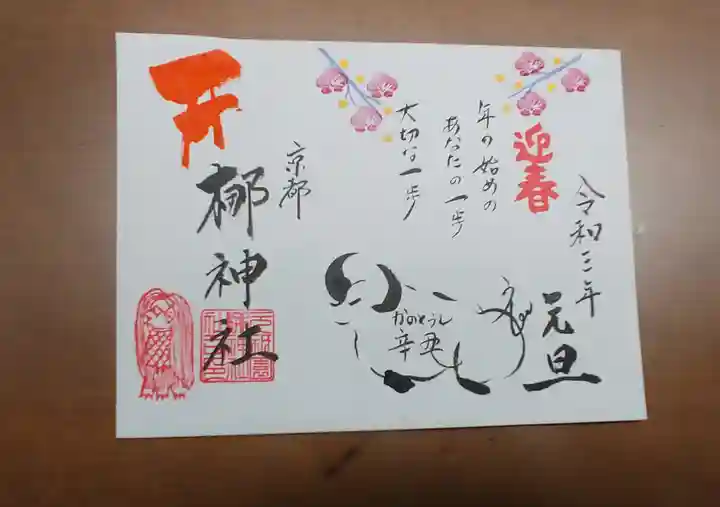 令和三年
元旦
迎春
年の始めの
あなたの一歩
大切な一歩
かのとうし
辛丑
京都
梛神社